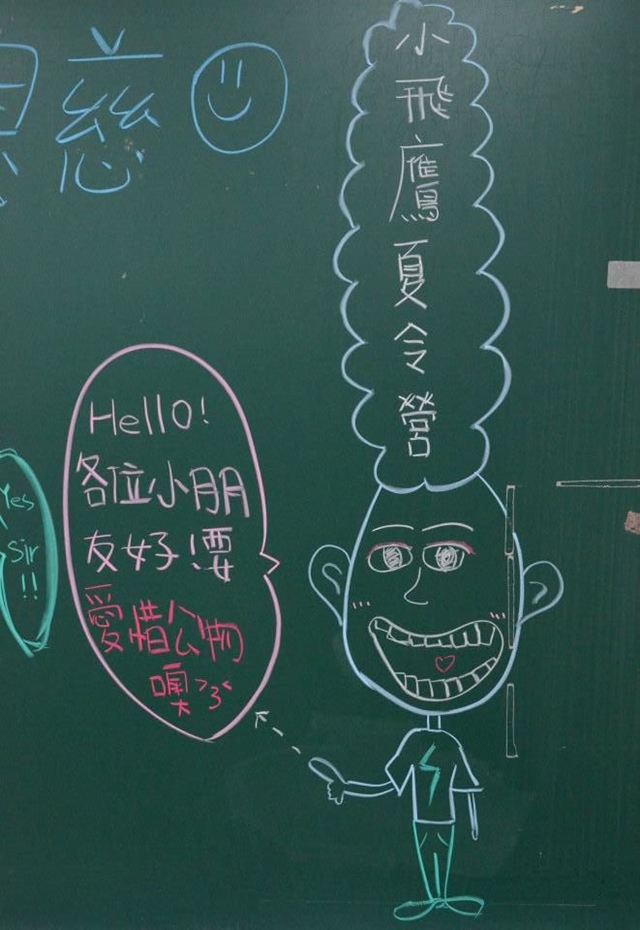 慈
小飛鷹夏令營
Hello!
各位小朋
友好!要
愛惜公物
噢>3<
Yes
Sir
!!